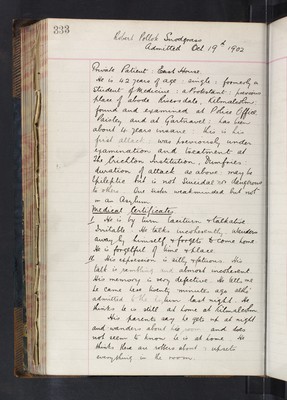 333
Robert Pollok Snodgrass
Admitted Oct 19th 1902
Private Patient: East House.
He is 42 years of age: single: formerly a
student of Medicine: a Protestant: previous
place of abode Riversdale, Kilmalcolm:
found and examined at Police Office,
Paisley, and at Gartnavel: has been
about 4 years insane: this is his
first attack: was previously under
examination and treatment at
The Crichton Institution, Dumfries
duration of attack as above: may be
Epileptic but is not suicidal or dangerous
to others. One sister weakminded but not
in an Asylum.
Medical Certificates
I He is by turn taciturn &
Irritable. He talks incoherently, wanders
away by himself & forgets to come home.
He is forgetful of time & place.
II His expression is silly & fatuous. His
talk is rambling and almost incoherent.
His memory is very defective. He tells me
he came here twenty minutes ago altho'
admitted to the last night. He
thinks he is still at home at Kilmalcolm
His parents say he gets up at night
and wanders about his room and does
not seem to know he is at home. He
thinks there are robbers about & upsets
everything in the room.